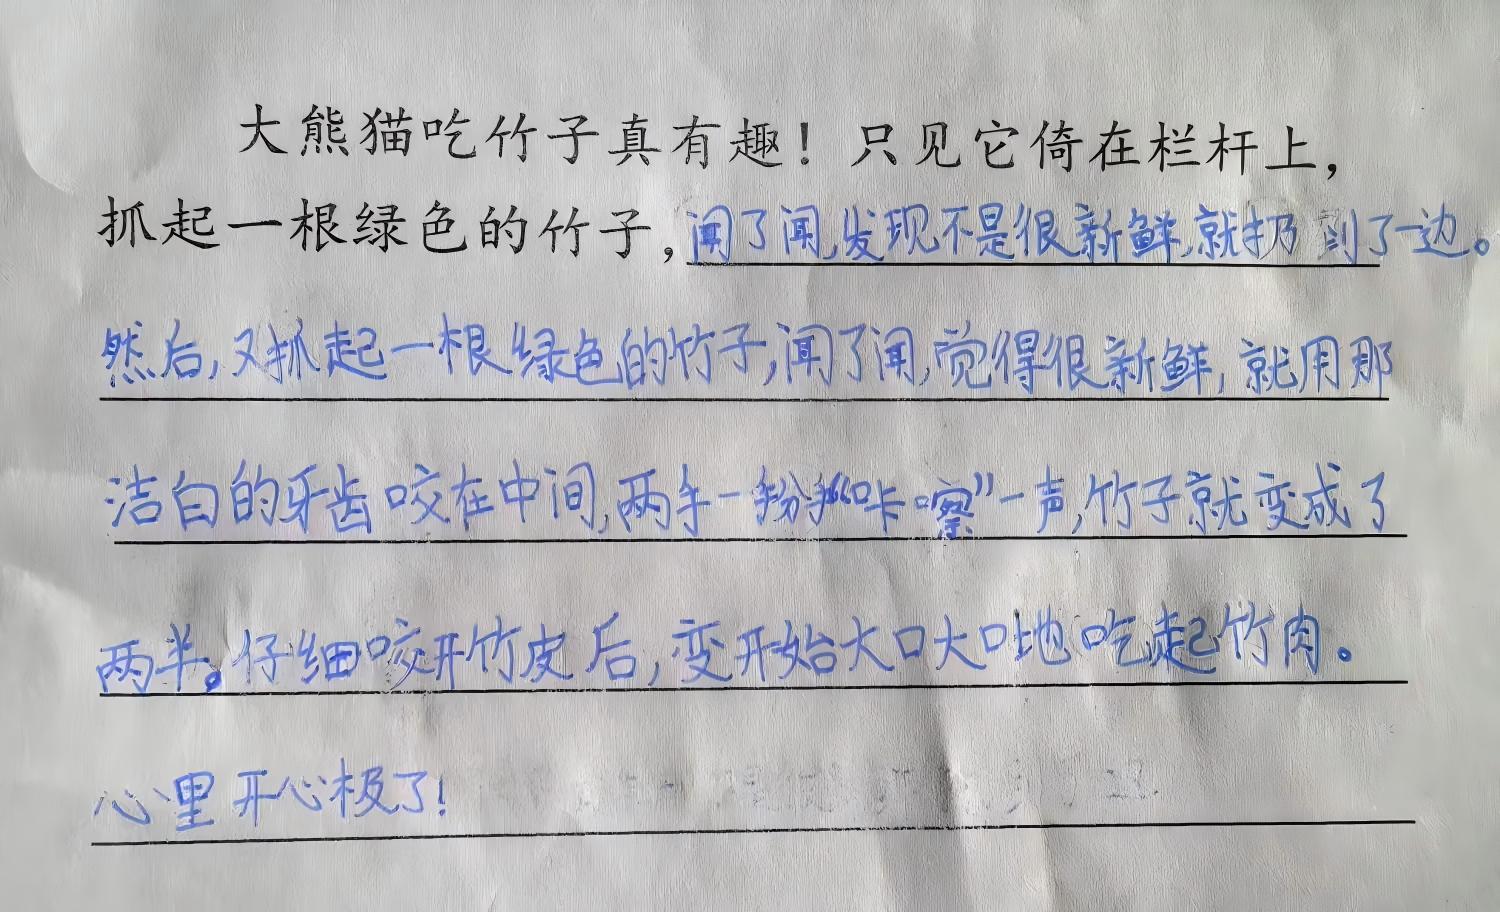 大熊猫吃竹子真有趣！只见它倚在栏杆上，
抓起一根绿色的竹子，闻了闻，发现不是很新鲜，就扔到了一边。
然后，又抓起一根绿色的竹子，闻了闻，觉得很新鲜，就用那
洁白的牙齿咬在中间，两手一掰，“咔嚓”一声，竹子就变成了
两半。仔细咬开竹皮后，变开始大口大口地吃起竹肉。
心里开心极了！